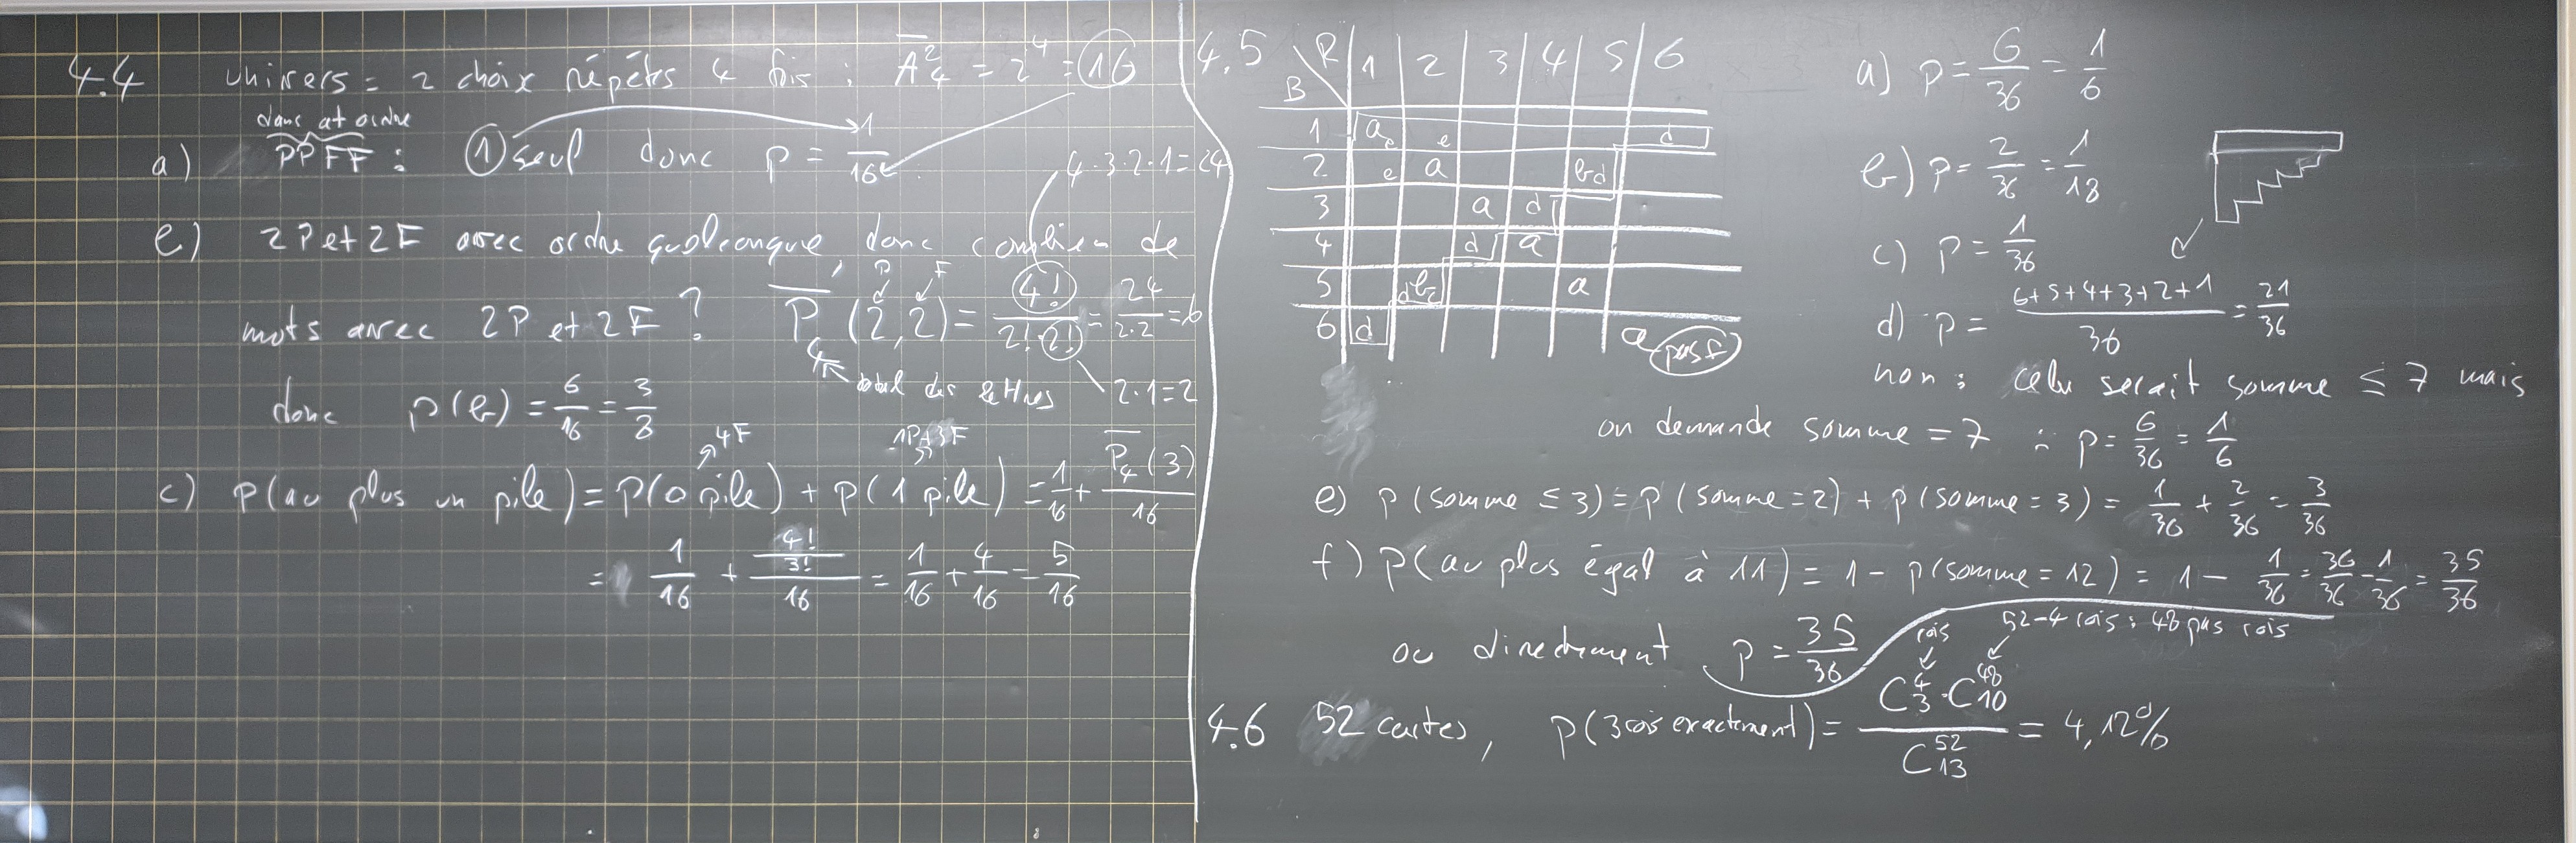 4.4 Univers = 2 choix répétés 4 fois : A̅²₄ = 2⁴ = 16
dans cet ordre
a) PPFF : 1 seul donc p = 1/16
4·3·2·1=24
b) 2P et 2F avec ordre quelconque, donc combien de
mots avec 2P et 2F ? P̅₄(2,2) = 4!/(2!·2!) = 24/(2·2) = 6
P F
total des lettres
2·1=2
donc p(b) = 6/16 = 3/8
4F 1P+3F
c) p(au plus un pile) = p(0 pile) + p(1 pile) = 1/16 + P̅₄(3)/16
= 1/16 + (4!/3!)/16 = 1/16 + 4/16 = 5/16
4.5 B\R 1 2 3 4 5 6
1 a c e d
2 e a bd
3 a d
4 d a
5 d b c a
6 d a pas f
a) p = 6/36 = 1/6
b) p = 2/36 = 1/18
c) p = 1/36
d) p = (6+5+4+3+2+1)/36 = 21/36
non : cela serait somme ≤ 7 mais
on demande somme = 7 : p = 6/36 = 1/6
e) p(somme ≤ 3) = p(somme = 2) + p(somme = 3) = 1/36 + 2/36 = 3/36
f) p(au plus égal à 11) = 1 − p(somme = 12) = 1 − 1/36 = 36/36 − 1/36 = 35/36
ou directement p = 35/36
rois 52−4 rois : 48 pas rois
4.6 52 cartes, p(3 rois exactement) = (C⁴₃·C⁴⁸₁₀)/C⁵²₁₃ = 4,12%